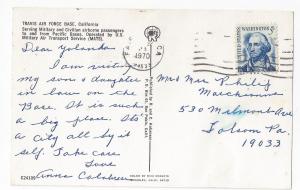 TRAVIS AIR FORCE BASE, California
Serving Military and Civilian airborne passengers
to and from Pacific Bases. Operated by U.S.
Military Air Transport Service (MATS).
Dear Yolanda
Am visiting
my son & daughter
in law on the
Base. It is such
a big place. Its
a city all by it
self. Take care
Love
Anna
E24139
1970
CA
WASHINGTON
Mr & Mrs Philip
530 Milmont Ave
Folsom Pa.
19033